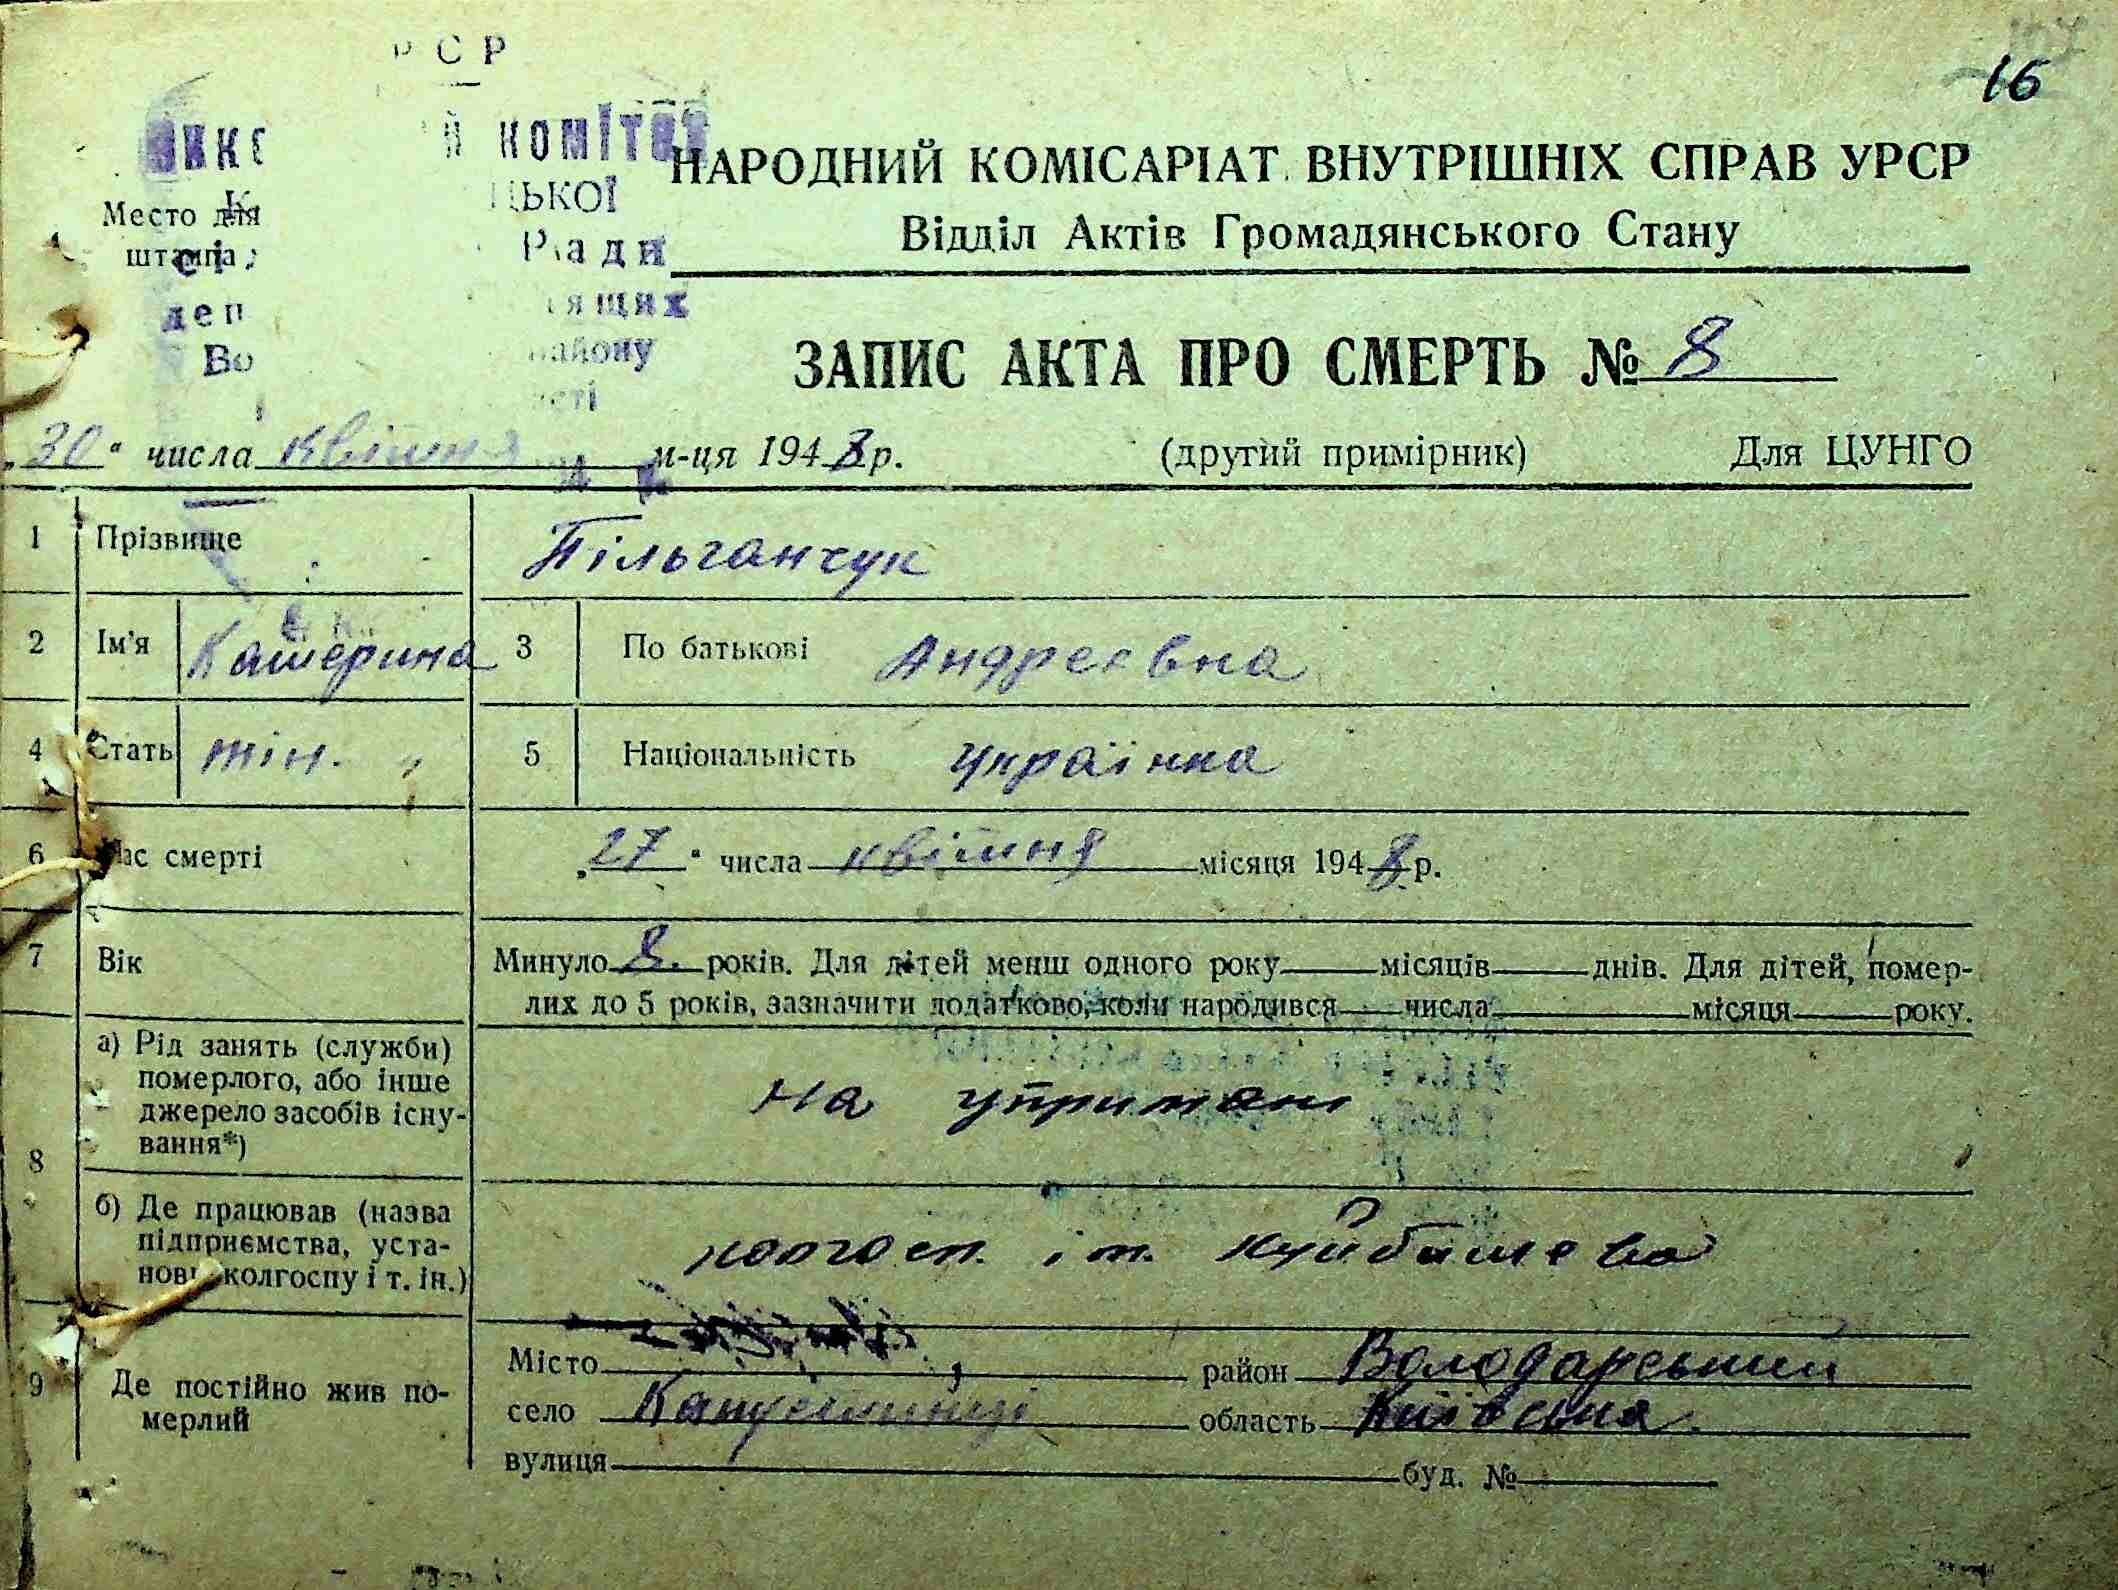 РСР
16
комітет
НАРОДНИЙ КОМІСАРІАТ ВНУТРІШНІХ СПРАВ УРСР
Место для
штампа
Ради
Відділ Актів Громадянського Стану
району
ЗАПИС АКТА ПРО СМЕРТЬ № 8
„30“ числа квітня м-ця 1948 р. (другий примірник) Для ЦУНГО
1 Прізвище Пільганчук
2 Ім'я Катерина 3 По батькові Андреєвна
4 Стать жін. 5 Національність українка
6 Час смерті „27“ числа квітня місяця 1948 р.
7 Вік Минуло 8. років. Для дітей менш одного року місяців днів. Для дітей, помер-
лих до 5 років, зазначити додатково, коли народився числа місяця року.
8 а) Рід занять (служби)
померлого, або інше
джерело засобів існу-
вання*)
на утримані
б) Де працював (назва
підприємства, уста-
нови, колгоспу і т. ін.)
колгосп. ім. Куйбишева
9 Де постійно жив по-
мерлий
Місто район Володарський
село Капустинці область Київська.
вулиця буд. №